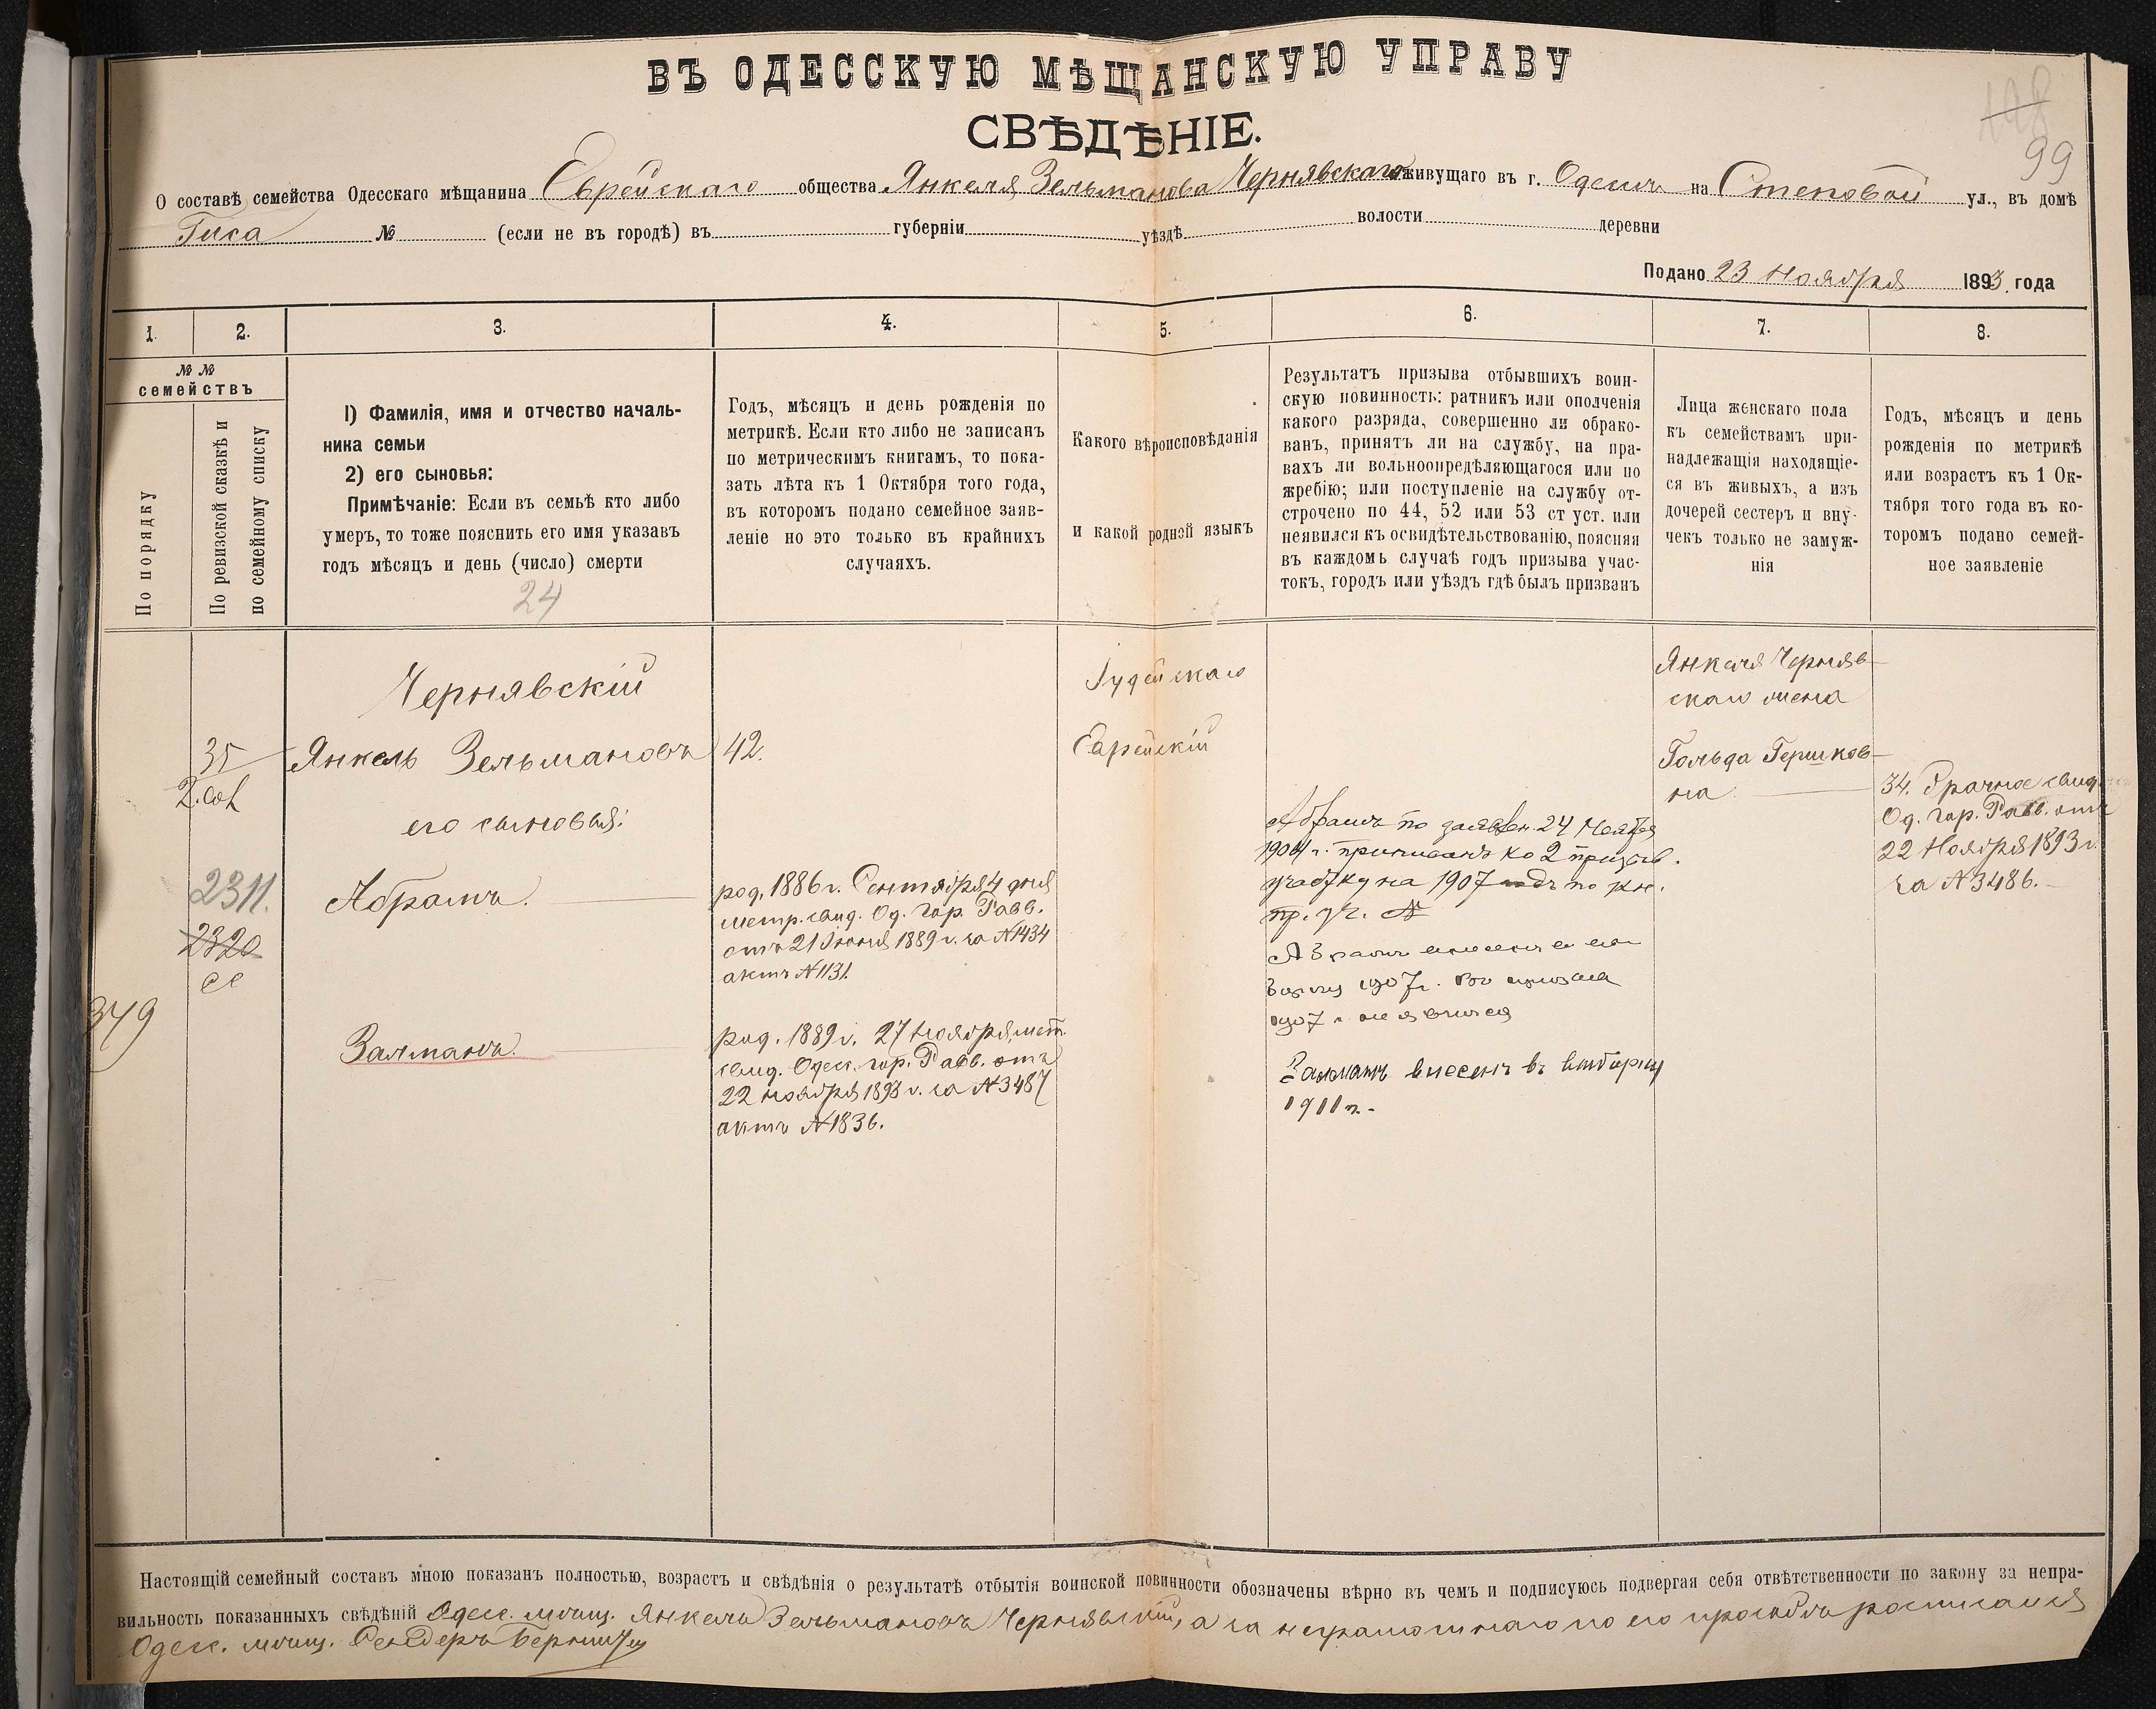 ВЪ ОДЕССКУЮ МѢЩАНСКУЮ УПРАВУ
СВѢДѢНІЕ.
99
О составѣ семейства Одесскаго мѣщанина Еврейскаго общества Янкеля Зельманова Чернявскаго живущаго въ г. Одессѣ на Степовой ул., въ домѣ
Гиса № (если не въ городѣ) въ губерніи уѣздѣ волости деревни
Подано 23 Ноября 1893 года
1. 2. 3. 4. 5. 6. 7. 8.
№ №
семействъ
По порядку
По ревизской сказкѣ и
по семейному списку
1) Фамилія, имя и отчество началь-
ника семьи
2) его сыновья:
Примѣчаніе: Если въ семьѣ кто либо
умеръ, то тоже пояснить его имя указавъ
годъ мѣсяцъ и день (число) смерти
24
Годъ, мѣсяцъ и день рожденія по
метрикѣ. Если кто либо не записанъ
по метрическимъ книгамъ, то пока-
зать лѣта къ 1 Октября того года,
въ которомъ подано семейное заяв-
леніе но это только въ крайнихъ
случаяхъ.
Какого вѣроисповѣданія
и какой родной языкъ
Результатъ призыва отбывшихъ воин-
скую повинность: ратникъ или ополченія
какого разряда, совершенно ли обрако-
ванъ, принятъ ли на службу, на пра-
вахъ ли вольноопредѣляющагося или по
жребію; или поступленіе на службу от-
строчено по 44, 52 или 53 ст уст. или
неявился къ освидѣтельствованію, поясняя
въ каждомъ случаѣ годъ призыва учас-
токъ, городъ или уѣздъ гдѣ былъ призванъ
Лица женскаго пола
къ семействамъ при-
надлежащія находящіе-
ся въ живыхъ, а изъ
дочерей сестеръ и вну-
чекъ только не замуж-
нія
Годъ, мѣсяцъ и день
рожденія по метрикѣ
или возрастъ къ 1 Ок-
тября того года въ ко-
торомъ подано семей-
ное заявленіе
Чернявскій
35
Янкель Зельмановъ
42.
его сыновья:
2311.
2320
349
Абрамъ.
род. 1886 г. Сентября 4 дня
метр. свид. Од. гор. Равв.
отъ 21 Іюня 1889 г. за №1434
актъ №1131.
Залманъ.
род. 1889 г. 27 Ноября, мет.
свид. Одес. гор. Равв. отъ
22 ноября 1893 г. за №3487
актъ №1836.
Іудейскаго
Еврейскій
Абрамъ по заявлен. 24 Ноября
1904 г. приписанъ ко 2 призыв.
участку на 1907 годъ по кн.
пр. уч. №
Абрамъ внесенъ въ
1907 г. въ призыва
1907 г. не явился
Залманъ внесенъ въ выборку
1911 г.
Янкеля Черняв-
скаго жена
Гольда Гершков-
на
34. Брачное свид.
Од. гор. Равв. отъ
22 Ноября 1893 г.
за №3486.
Настоящій семейный составъ мною показанъ полностью, возрастъ и свѣдѣнія о результатѣ отбытія воинской повинности обозначены вѣрно въ чемъ и подписуюсь подвергая себя отвѣтственности по закону за непра-
вильность показанныхъ свѣдѣній Одесс. мѣщ. Янкель Зельмановъ Чернявскій, а за неграмотнаго по его просьбѣ росписался
Одесс. мѣщ. Сендеръ